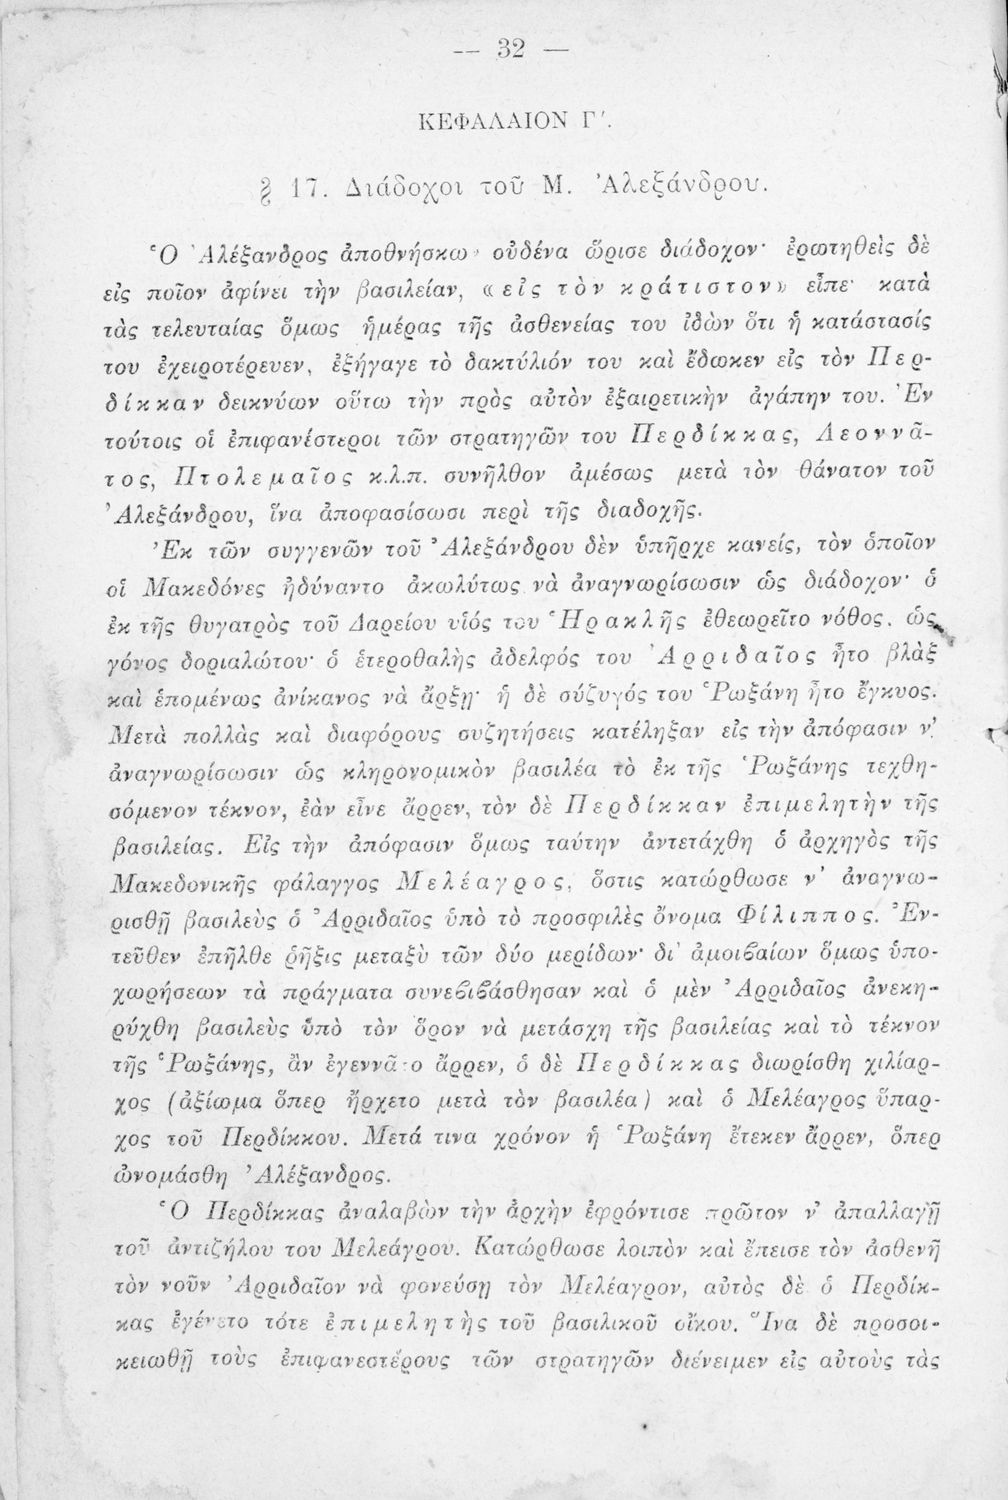 — 32 —
ΚΕΦΑΛΑΙΟΝ Γ΄.
§ 17. Διάδοχοι τοῦ Μ. Ἀλεξάνδρου.
Ὁ Ἀλέξανδρος ἀποθνήσκων οὐδένα ὥρισε διάδοχον· ἐρωτηθεὶς δὲ
εἰς ποῖον ἀφίνει τὴν βασιλείαν, «εἰς τὸν κράτιστον» εἶπε· κατὰ
τὰς τελευταίας ὅμως ἡμέρας τῆς ἀσθενείας του ἰδὼν ὅτι ἡ κατάστασίς
του ἐχειροτέρευεν, ἐξήγαγε τὸ δακτύλιόν του καὶ ἔδωκεν εἰς τὸν Περ-
δίκκαν δεικνύων οὕτω τὴν πρὸς αὐτὸν ἐξαιρετικὴν ἀγάπην του. Ἐν
τούτοις οἱ ἐπιφανέστεροι τῶν στρατηγῶν του Περδίκκας, Λεοννᾶ-
τος, Πτολεμαῖος κ.λ.π. συνῆλθον ἀμέσως μετὰ τὸν θάνατον τοῦ
Ἀλεξάνδρου, ἵνα ἀποφασίσωσι περὶ τῆς διαδοχῆς.
Ἐκ τῶν συγγενῶν τοῦ Ἀλεξάνδρου δὲν ὑπῆρχε κανείς, τὸν ὁποῖον
οἱ Μακεδόνες ἠδύναντο ἀκωλύτως νὰ ἀναγνωρίσωσιν ὡς διάδοχον· ὁ
ἐκ τῆς θυγατρὸς τοῦ Δαρείου υἱός του Ἡρακλῆς ἐθεωρεῖτο νόθος. ὡς
γόνος δοριαλώτου· ὁ ἑτεροθαλὴς ἀδελφός του Ἀρριδαῖος ἦτο βλὰξ
καὶ ἑπομένως ἀνίκανος νὰ ἄρξῃ· ἡ δὲ σύζυγός του Ῥωξάνη ἦτο ἔγκυος.
Μετὰ πολλὰς καὶ διαφόρους συζητήσεις κατέληξαν εἰς τὴν ἀπόφασιν ν’
ἀναγνωρίσωσιν ὡς κληρονομικὸν βασιλέα τὸ ἐκ τῆς Ῥωξάνης τεχθη-
σόμενον τέκνον, ἐὰν εἶνε ἄρρεν, τὸν δὲ Περδίκκαν ἐπιμελητὴν τῆς
βασιλείας. Εἰς τὴν ἀπόφασιν ὅμως ταύτην ἀντετάχθη ὁ ἀρχηγὸς τῆς
Μακεδονικῆς φάλαγγος Μελέαγρος, ὅστις κατώρθωσε ν’ ἀναγνω-
ρισθῇ βασιλεὺς ὁ Ἀρριδαῖος ὑπὸ τὸ προσφιλὲς ὄνομα Φίλιππος. Ἐν-
τεῦθεν ἐπῆλθε ῥῆξις μεταξὺ τῶν δύο μερίδων· δι’ ἀμοιβαίων ὅμως ὑπο-
χωρήσεων τὰ πράγματα συνεβιβάσθησαν καὶ ὁ μὲν Ἀρριδαῖος ἀνεκη-
ρύχθη βασιλεὺς ὑπὸ τὸν ὅρον νὰ μετάσχη τῆς βασιλείας καὶ τὸ τέκνον
τῆς Ῥωξάνης, ἂν ἐγεννᾶτο ἄρρεν, ὁ δὲ Περδίκκας διωρίσθη χιλίαρ-
χος (ἀξίωμα ὅπερ ἤρχετο μετὰ τὸν βασιλέα) καὶ ὁ Μελέαγρος ὕπαρ-
χος τοῦ Περδίκκου. Μετά τινα χρόνον ἡ Ῥωξάνη ἔτεκεν ἄρρεν, ὅπερ
ὠνομάσθη Ἀλέξανδρος.
Ὁ Περδίκκας ἀναλαβὼν τὴν ἀρχὴν ἐφρόντισε πρῶτον ν’ ἀπαλλαγῇ
τοῦ ἀντιζήλου του Μελεάγρου. Κατώρθωσε λοιπὸν καὶ ἔπεισε τὸν ἀσθενῆ
τὸν νοῦν Ἀρριδαῖον νὰ φονεύσῃ τὸν Μελέαγρον, αὐτὸς δὲ ὁ Περδίκ-
κας ἐγένετο τότε ἐπιμελητὴς τοῦ βασιλικοῦ οἴκου. Ἵνα δὲ προσοι-
κειωθῇ τοὺς ἐπιφανεστέρους τῶν στρατηγῶν διένειμεν εἰς αὐτοὺς τὰς